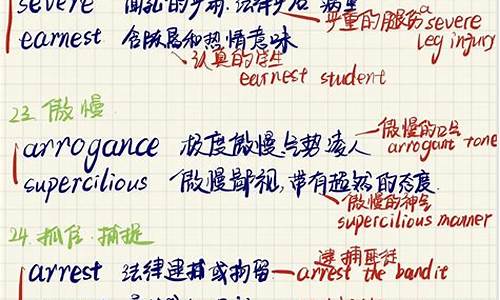 severe
严重的腿伤 a severe leg injury
earnest 含
和热情意味
认真的学生
earnest student
23. 傲慢
arrogance 极度傲慢气势凌人
傲慢的口气
arrogant tone
supercilious 傲慢鄙视,带有超然的态度
傲慢的神气
supercilious manner
24. 抓住.捕捉
arrest 法律逮捕或拘留
逮捕匪徒
arrest the bandit